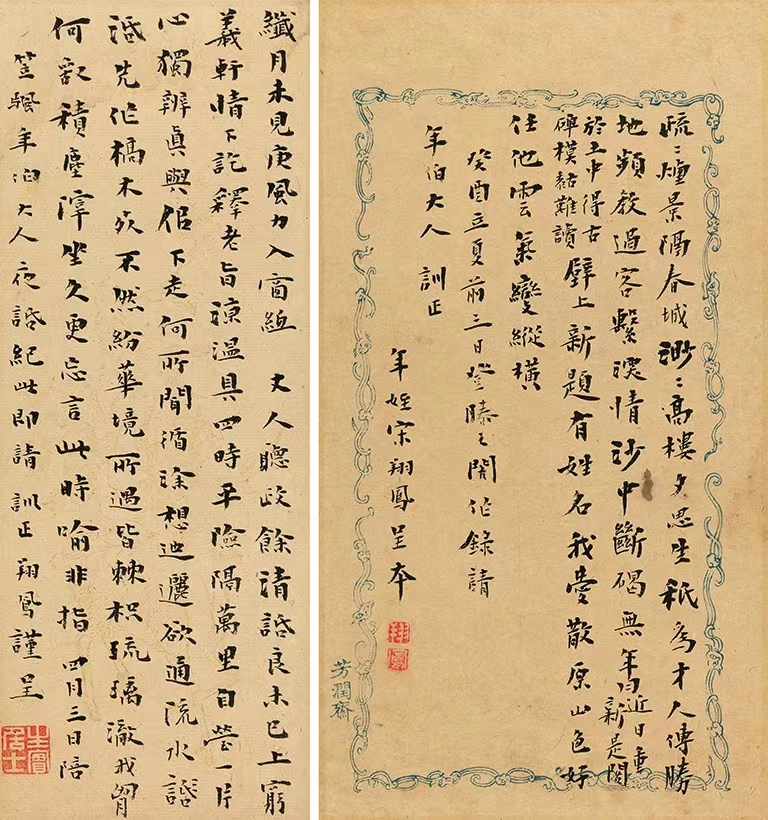 疏〻煙景隔春城渺〻高樓夕思生秖為才人傳勝
地頻教過客繫深情沙中斷碣無年月近日重新是閣
於土中得古碑模黏難讀壁上新題有姓名我愛散原山色好
任他雲氣變縱橫
癸酉立夏前三日登滕王閣作錄請
年伯大人訓正
年姪宋翔鳳呈本
翔鳳
芳潤齋
纖月未見庚風力入窗紙 丈人聽政餘清話良未已上窮
羲軒情下訖釋老旨諒溫具四時平險隔萬里自營一片
心獨辨真與佀下走何所聞循塗想迤邐欲通流水
先作槁木死不然紛華境所遇皆棘枳琉璃澈我胸
何敢積塵滓坐久更忘言此時喻非指 四月三日陪
笠颿年伯大人夜話紀此即請 訓正 翔鳳謹呈
居士